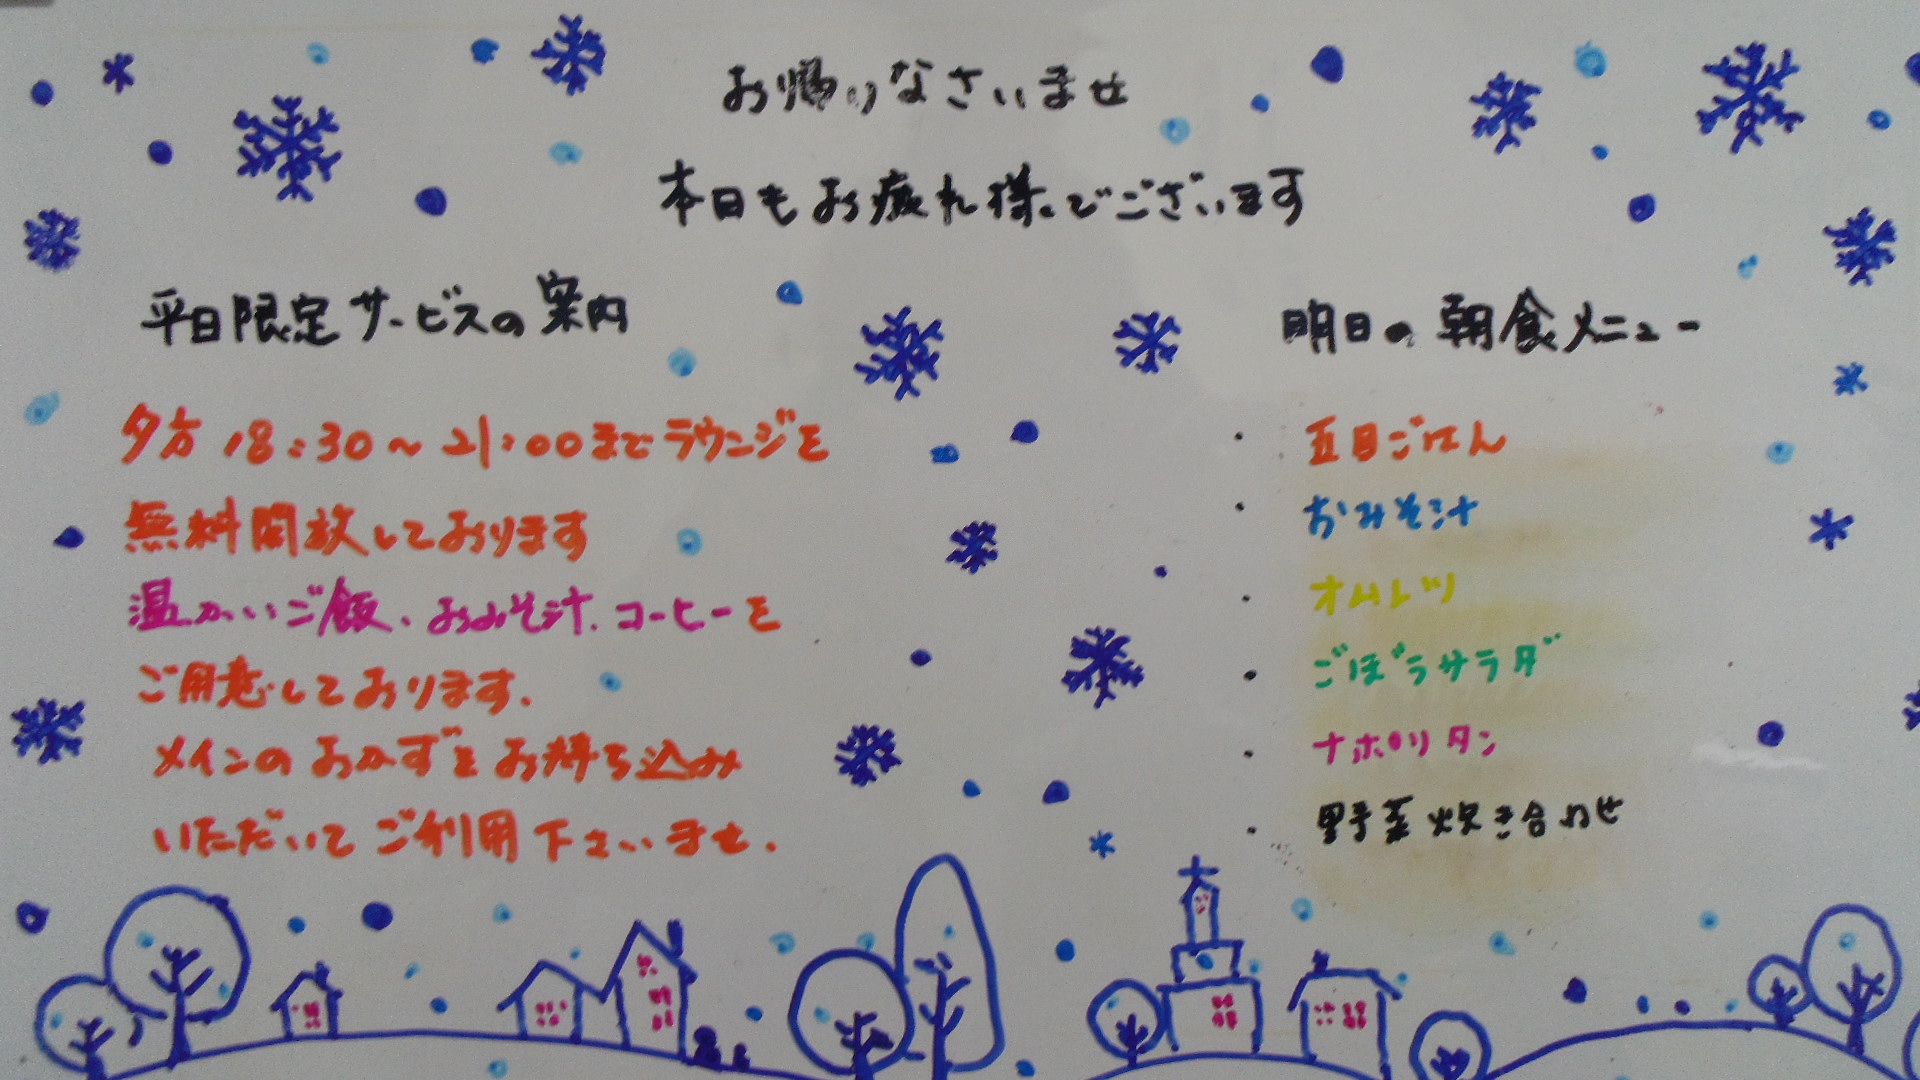 お帰りなさいませ
本日もお疲れ様でございます
平日限定サービスの案内
夕方18:30～21:00までラウンジを
無料開放しております
温かいご飯、おみそ汁、コーヒーを
ご用意しております.
メインのおかずをお持ち込み
いただいてご利用下さいませ.
明日の朝食メニュー
・五目ごはん
・おみそ汁
・オムレツ
・ごぼうサラダ
・ナポリタン
・野菜炊き合わせ